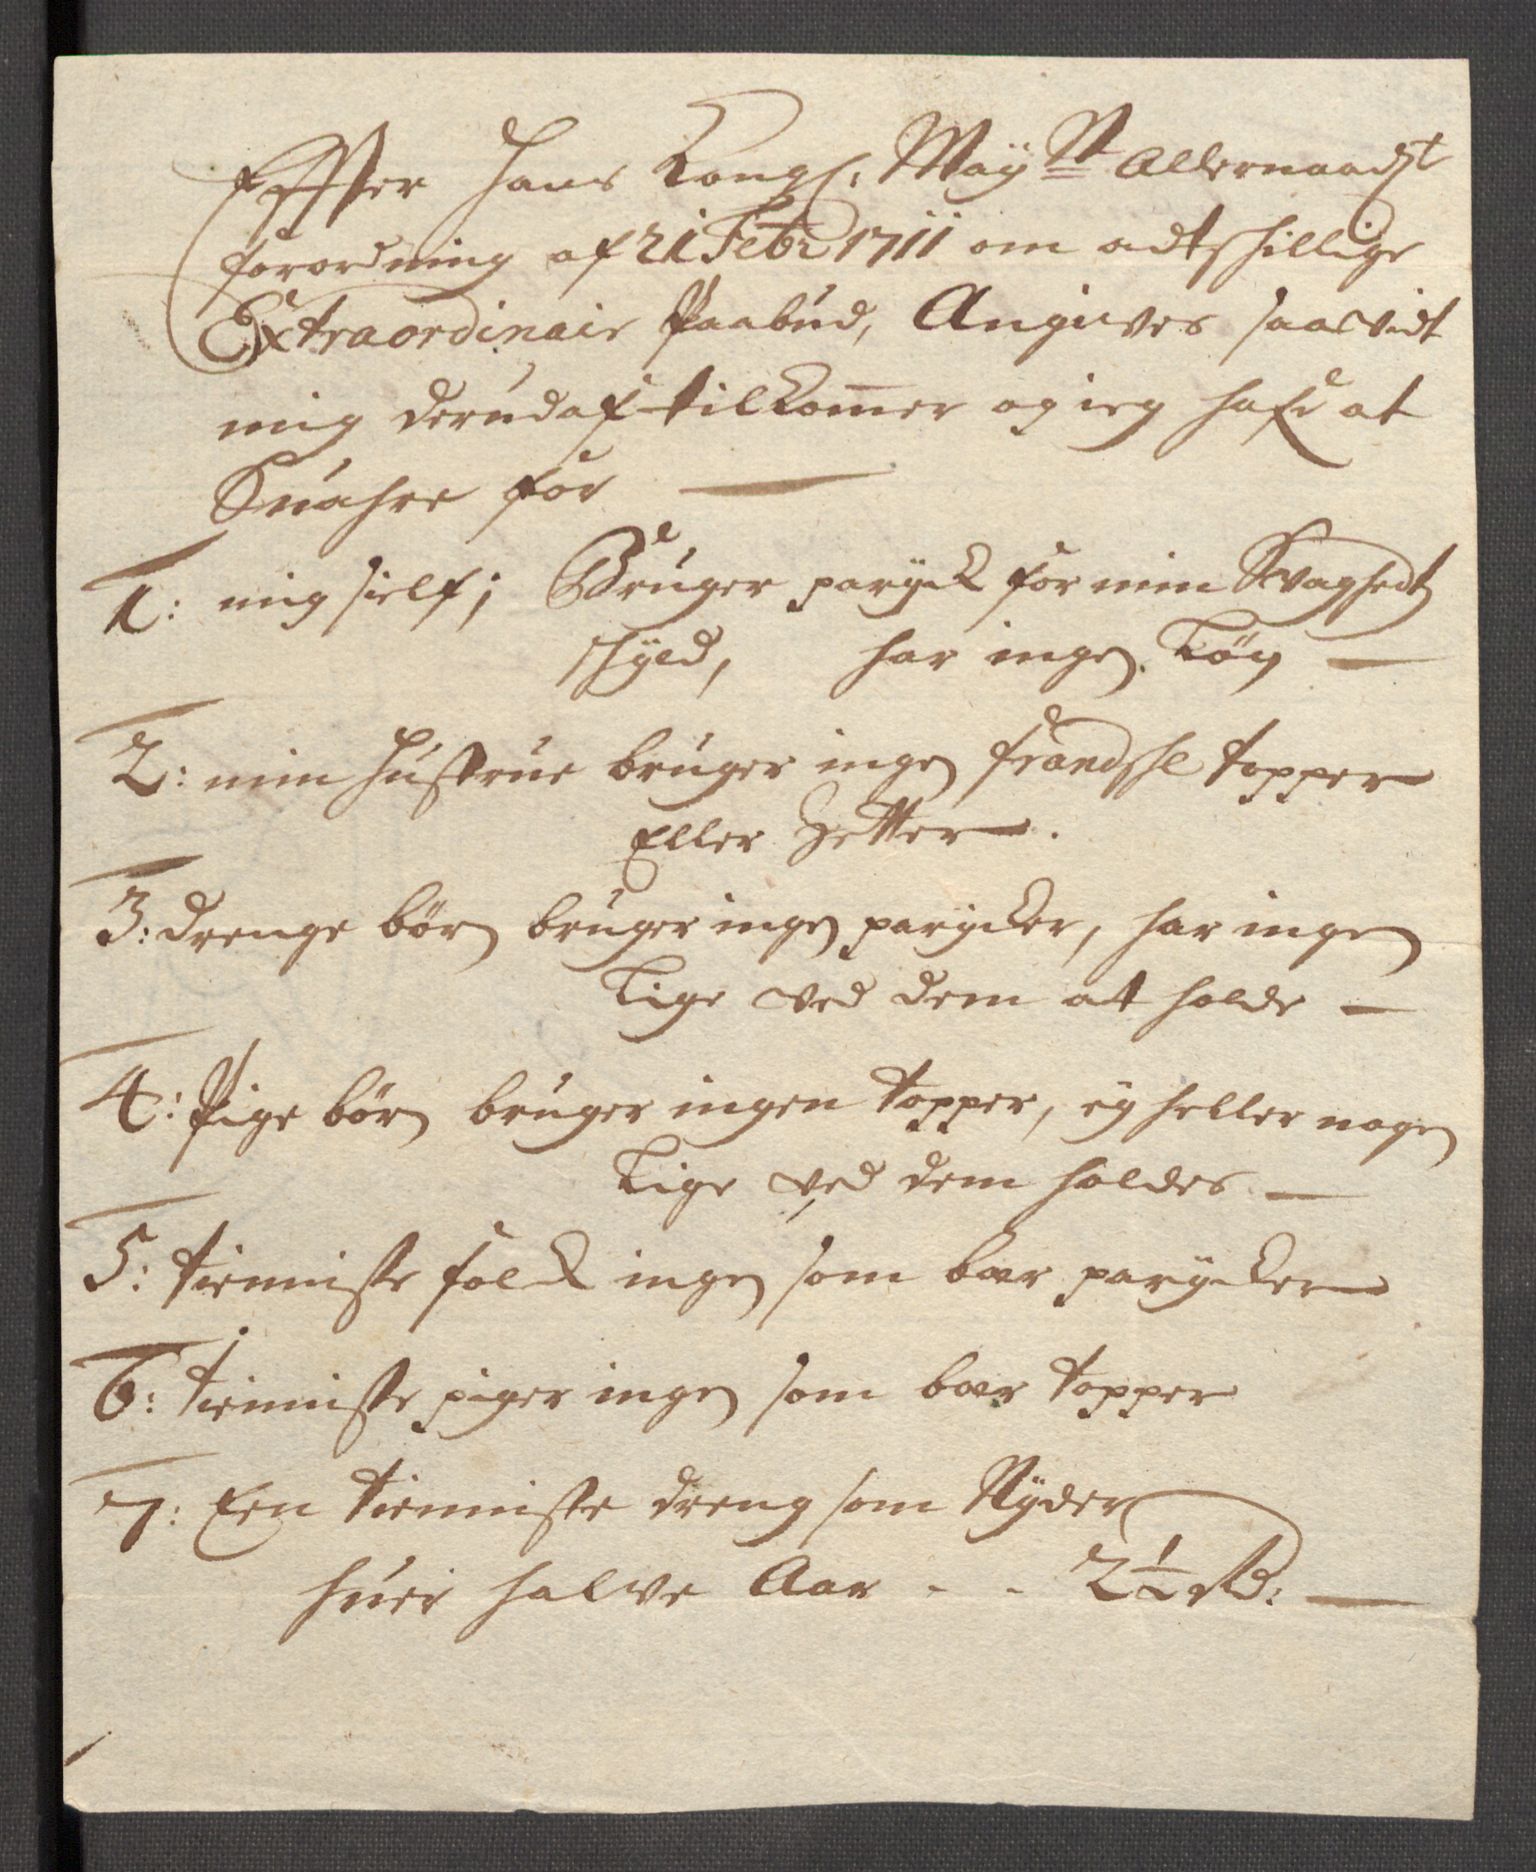 Effter Hans Kongl: Maÿ:ts Allernaadgst
forordning af 21 Febr 1711 om adtskillige
Extraordinair Paabud, Angives saavidt
mig derudaf tilkommer og ieg hafr at
Suahre for
1: mig sielf; Bruger parÿck for min Svagheds
skÿld, har ingen Løn
2: min Hustrue bruger ingen frandske topper
Eller Setter.
3: drenge børn bruger ingen parÿcker, har ingen
Lige ved dem at holde
4: Pige børn bruger ingen topper, eÿ heller nogen
Lige ved dem holdes
5: tienniste folck ingen som bær parÿcker
6: tienniste piger ingen som bær topper
7: Een tienniste dreng som Nÿder
huer halve Aar - - 2½ Rd: